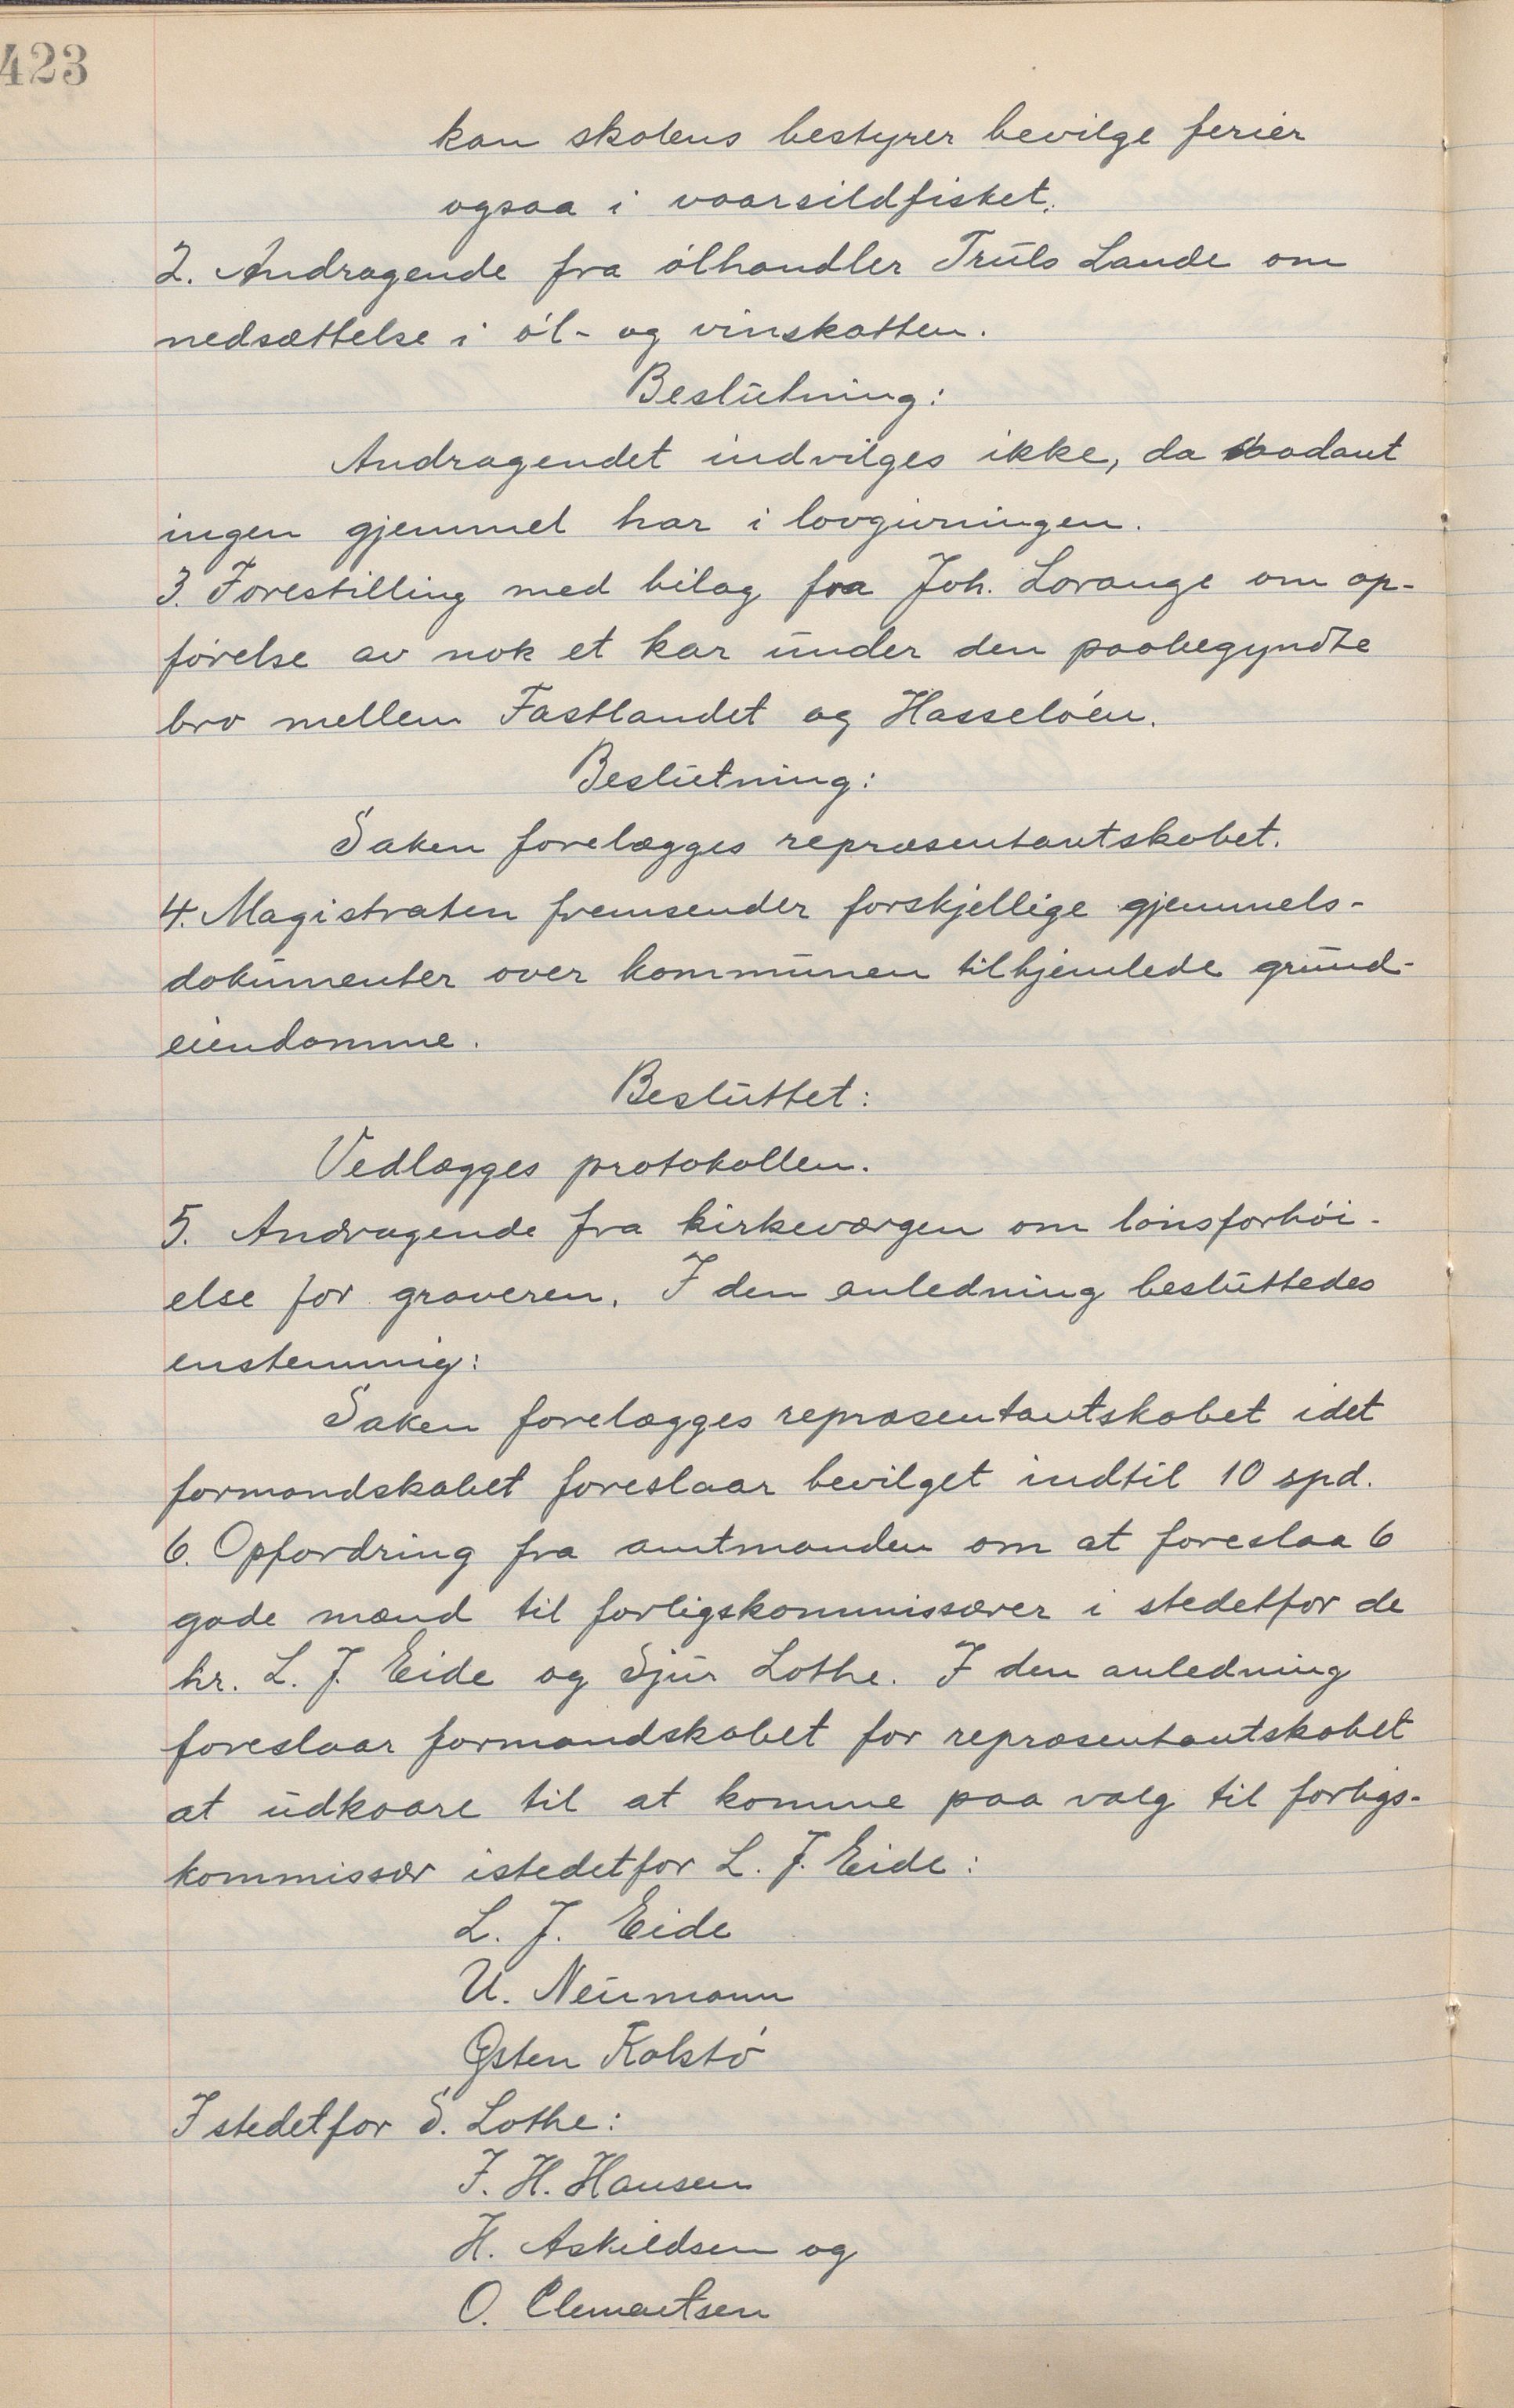 423
kan skolens bestyrer bevilge ferier
ogsaa i vaarsildfisket.
2. Andragende fra ølhandler Truls Lande om
nedsættelse i øl- og vinskatten.
Beslutning:
Andragendet indvilges ikke, da saadant
ingen hjemmel har i lovgivningen.
3. Forestilling med bilag fra Joh. Lorange om op-
førelse av nok et kar under den paabegyndte
bro mellem Fastlandet og Hasseløen.
Beslutning:
Saken forelægges repræsentantskabet.
4. Magistraten fremsender forskjellige hjemmels-
dokumenter over kommunen tilhjemlede grund-
eiendomme.
Besluttet:
Vedlægges protokollen.
5. Andragende fra kirkeværgen om lønsforhøi-
else for graveren. I den anledning besluttedes
enstemmig:
Saken forelægges repræsentantskabet idet
formandskabet foreslaar bevilget indtil 10 spd.
6. Opfordring fra amtmanden om at foreslaa 6
gode mænd til forligskommissærer i stedetfor de
hr. L. J. Eide og Sjur Lothe. I den anledning
foreslaar formandskabet for repræsentantskabet
at udkaare til at komme paa valg til forligs-
kommissær istedetfor L. J. Eide:
L. J. Eide
U. Neumann
Østen Kolstø
I stedetfor S. Lothe:
J. H. Hansen
H. Askildsen og
O. Clementsen